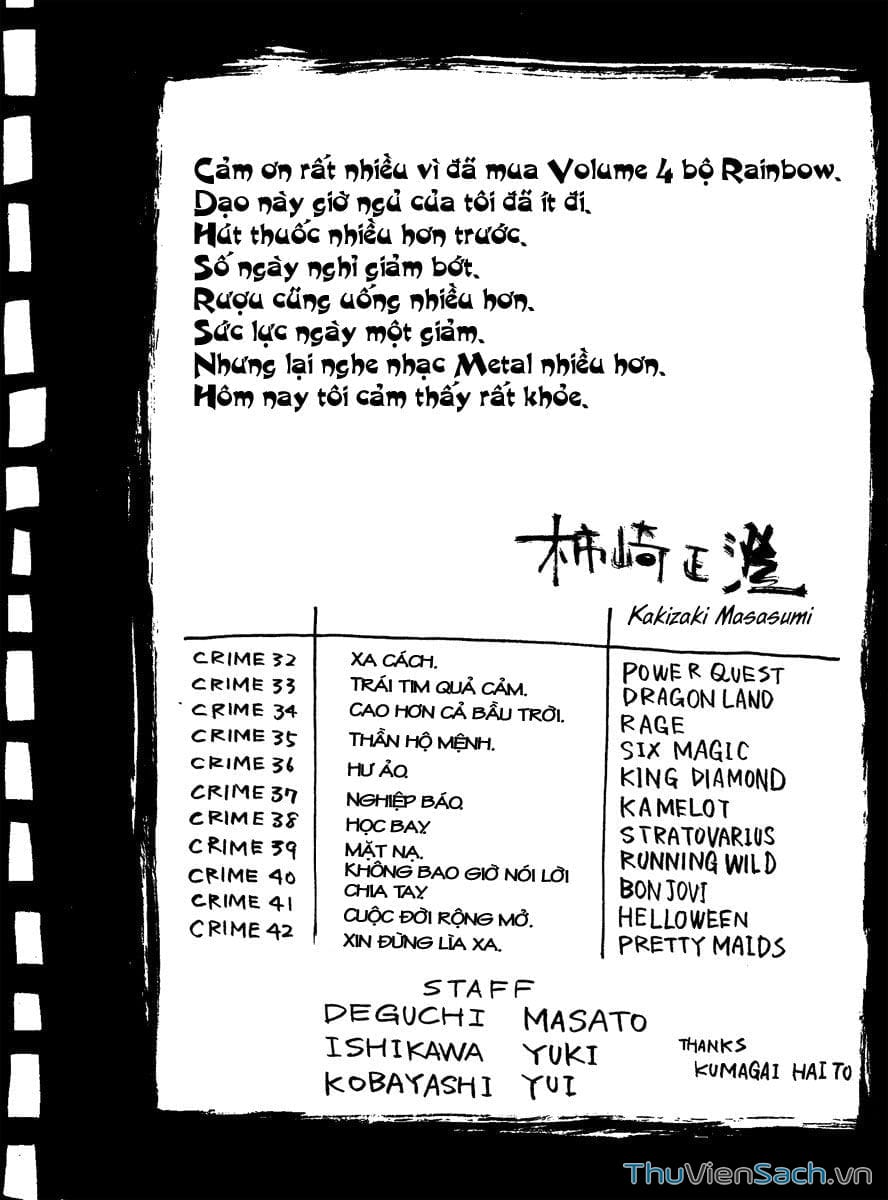 Cảm ơn rất nhiều vì đã mua Volume 4 bộ Rainbow.
Dạo này giờ ngủ của tôi đã ít đi.
Hút thuốc nhiều hơn trước.
Số ngày nghỉ giảm bớt.
Rượu cũng uống nhiều hơn.
Sức lực ngày một giảm.
Nhưng lại nghe nhạc Metal nhiều hơn.
Hôm nay tôi cảm thấy rất khỏe.
柿崎正澄
Kakizaki Masasumi
CRIME 32 XA CÁCH. POWER QUEST
CRIME 33 TRÁI TIM QUẢ CẢM. DRAGON LAND
CRIME 34 CAO HƠN CẢ BẦU TRỜI. RAGE
CRIME 35 THẦN HỘ MỆNH. SIX MAGIC
CRIME 36 HƯ ẢO. KING DIAMOND
CRIME 37 NGHIỆP BÁO. KAMELOT
CRIME 38 HỌC BAY. STRATOVARIUS
CRIME 39 MẶT NẠ. RUNNING WILD
CRIME 40 KHÔNG BAO GIỜ NÓI LỜI
CHIA TAY. BON JOVI
CRIME 41 CUỘC ĐỜI RỘNG MỞ. HELLOWEEN
CRIME 42 XIN ĐỪNG LÌA XA. PRETTY MAIDS
STAFF
DEGUCHI MASATO
ISHIKAWA YUKI
KOBAYASHI YUI
THANKS
KUMAGAI HAITO
ThuVienSach.vn